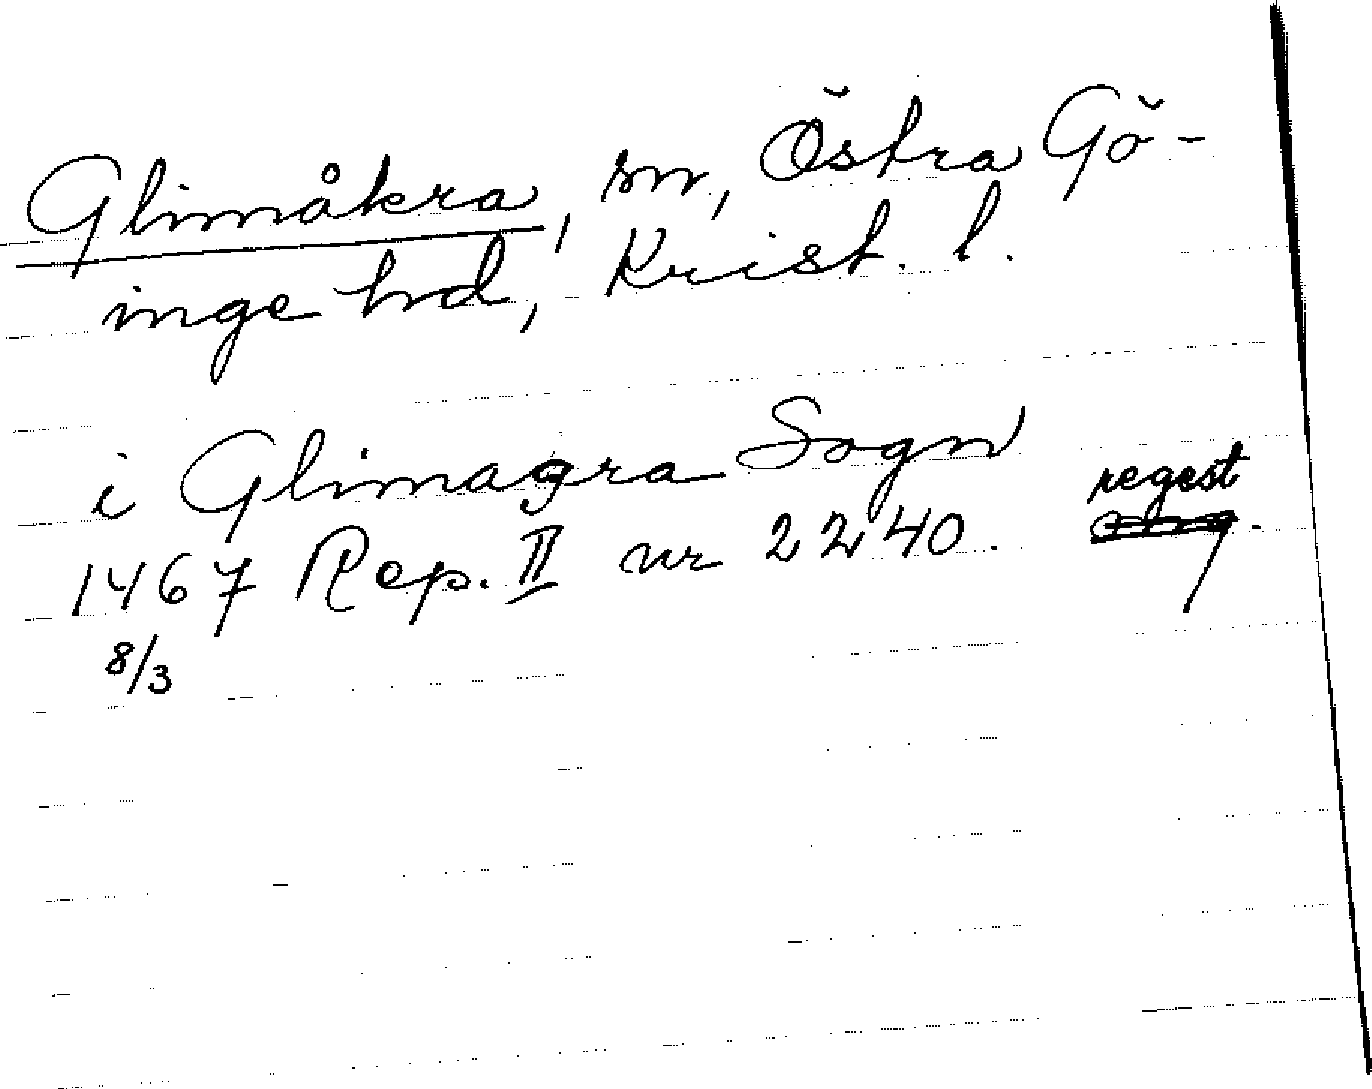 Glimåkra, sn, Östra Gö-
inge hd, Krist. l.
i Glimagra Sogn
regest
1467 Rep. II nr 2240.
8/3